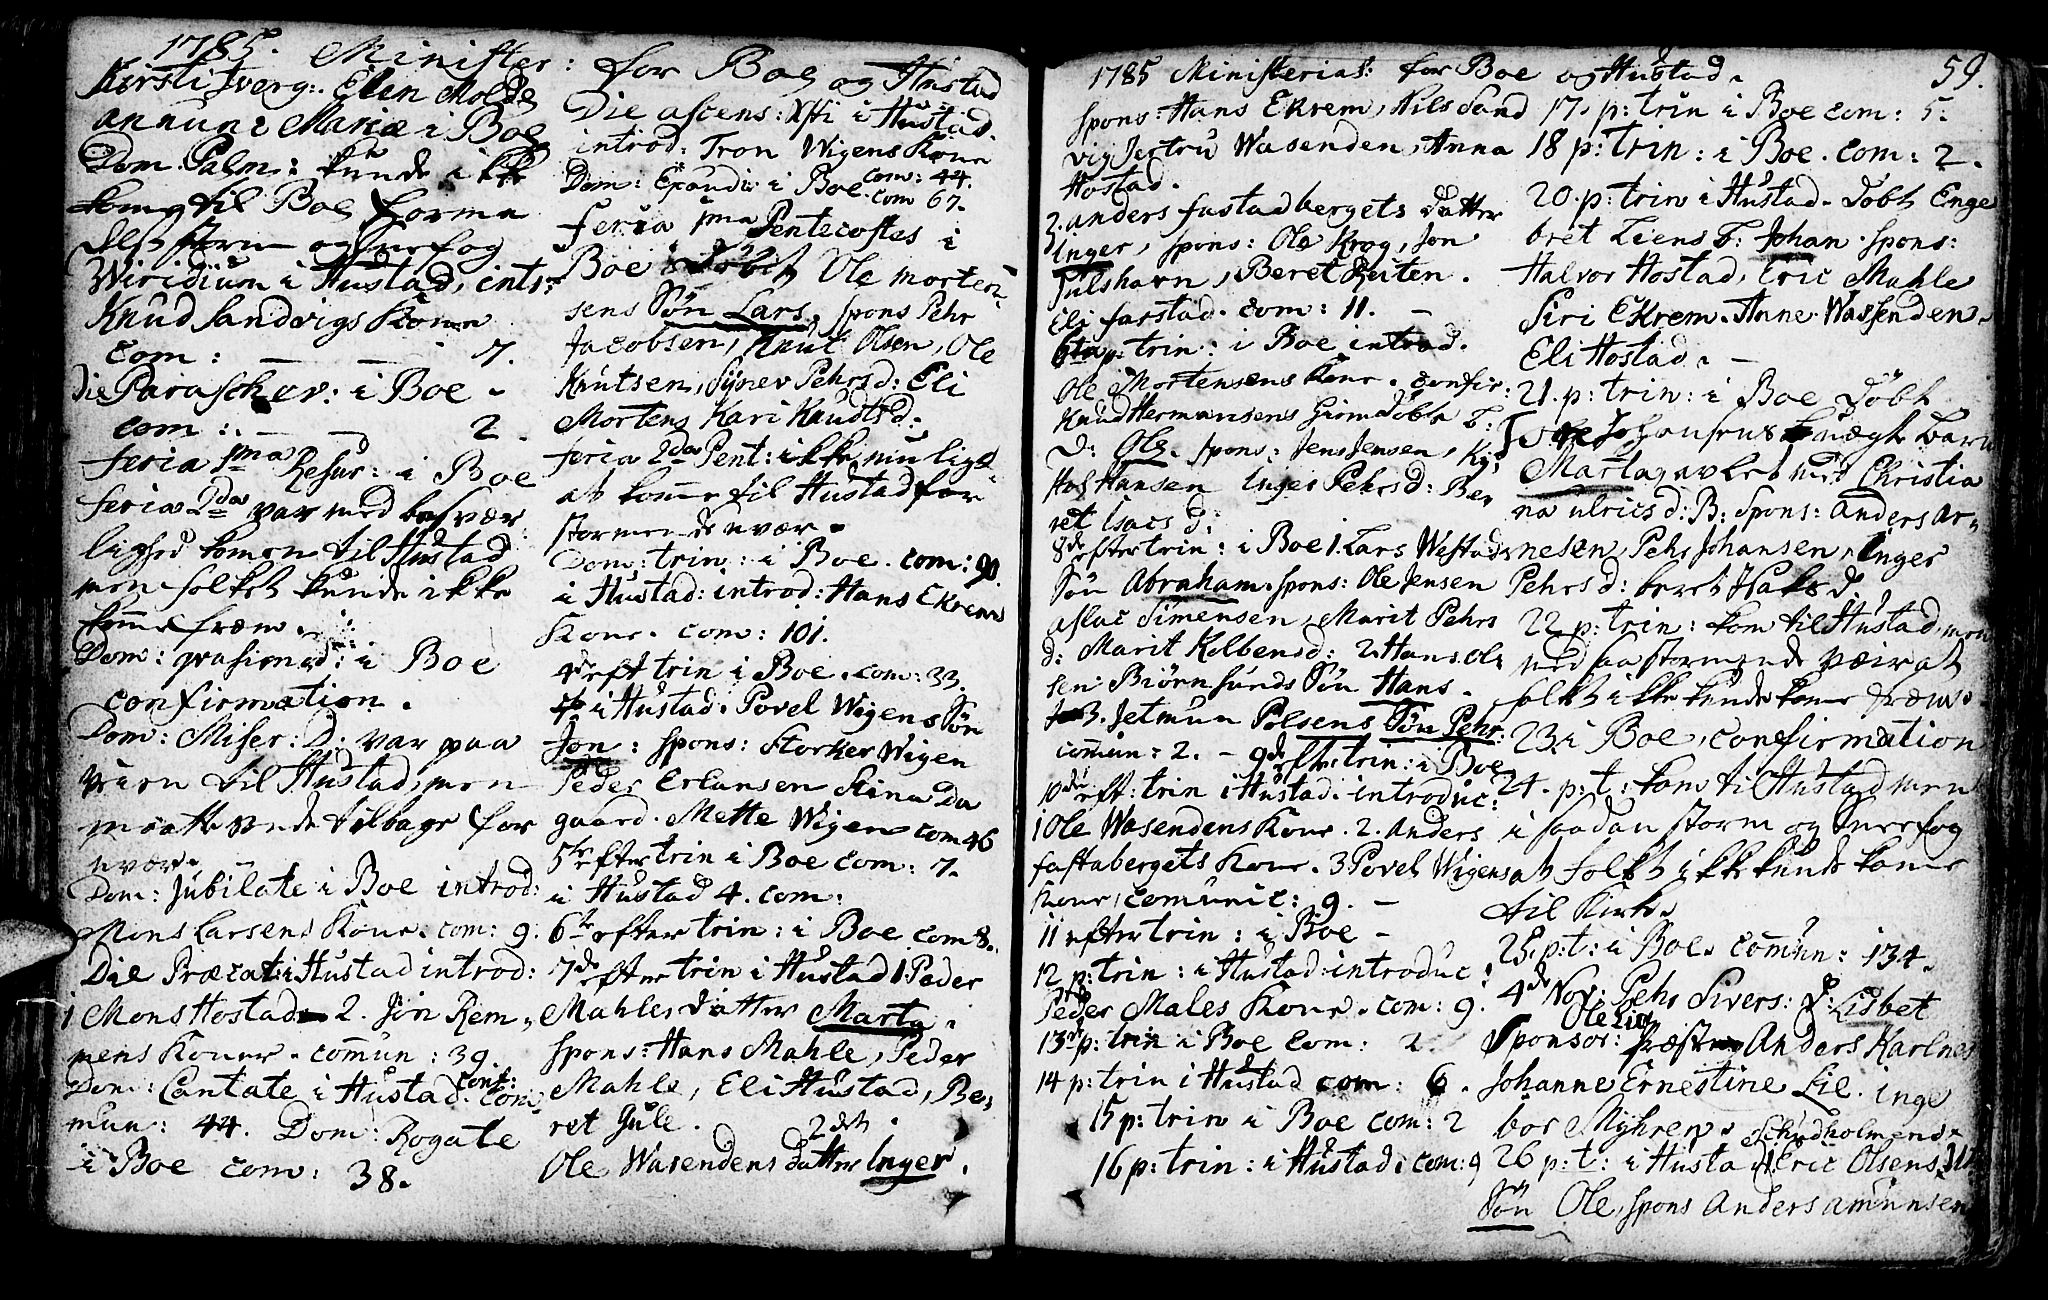 1785. Minister: for Boe og Hustad
Kirsti Iverg: Elen Molde
annunc Mariæ i Boe
Dom. Palm: kunde ikke
kome til Boe forme
delst storm og snefog
Wiridium i Hustad, int:
Knud Sandvigs Kone
com: — — 7.
die Paraschev: i Boe.
com: — — 2.
feria 1ma Resur: i Boe
feria 2da var med besvær
lighed komen til Hustad
men folket kunde ikke
komme frem.
Dom: qvasimod: i Boe
confirmation.
Dom: Miser: D: var paa
veien til Hustad, men
maatte vende tilbage for
uvær.
Dom: Jubilate i Boe introd:
Mons Larsens Kone. com: 9.
Die Præcat: i Hustad introd:
1 Mons Hostad 2. Jon Rem
mens Koner. commun: 39.
Dom: Cantate i Hustad. conf: com
mun: 44. Dom: Rogate
i Boe com: 38.
Die ascens: Xsti i Hustad.
introd: Tron Wigens Kone
com: 44.
Dom: Exaudi: i Boe. com 67.
Feria 1ma Pentecostes i
Boe døbt Ole Morten
sens Søn Lars, spons Pehr
Jacobsen, Knut Olsen, Ole
Knutsen, Synev Pehrsd: Eli
Mortens Kari Knudtsd:
feria 2da Pent: ikke muligt
at komme til Hustad for
stormende uvær.
Dom: trin: i Boe. com: 90.
i Hustad: introd: Hans Ekrem
Kone. com: 101.
eft trin i Boe. com: 33.
i Hustad. Povel Wigens Søn
Jon: spons: Storker Wigen
Peder Erlansen Stina Da
gaard. Mette Wigen com 46
5te efter trin i Boe com: 7.
i Hustad 4. com:
6te efter trin: i Boe com 8.
7de efter trin i Hustad 1. Peder
Mahles datter Marta.
spons: Hans Mahle, Peder
Mahle, Eli Hustad, Be
ret Jule. 2det.
Ole Wasendens datter Inger.
1785 Ministerial: for Boe og Hustad. 59.
spons: Hans Ekrem, Nils Sand
vig Jertru Wasenden, Anna
Hostad.
3. anders fustadbergets datter
Inger, spons: Ole Krog, Jon
Julshavn, Beret Reiten.
Eli farstad. com: 11. —
6te p: trin: i Boe introd.
Ole Mortensens Kone. confir:
Knud Hermansens hiemdøbte B:
D: Ole. spons: Jens Jensen,
Hansen Inger Pehrsd: Ber
ret Isacsd:
8de efter trin: i Boe 1. Lars Westads
Søn Abraham. spons: Ole Jensen
aslac Simensen, Marit Pehrs
d: Marit Kolbensd: 2. Hans Ole
sen Biørnsunds Søn Hans.
3. Jetmun Polsens Søn Pehr:
commun: 2. — 9de efter trin: i Boe
10de eft: trin i Hustad. introduc:
1 Ole Wasendens Kone. 2. Anders
fastabergets Kone. 3 Povel Wigens
Kone, comunic: 9. —
11 efter trin: i Boe —
12 p: trin: i Hustad: introduc:
Peder Males Kone. com: 9.
13de p: trin i Boe com: 2.
14 p: trin i Hustad com: 6.
15 p: trin i Boe com: 2
16 p: trin: i Hustad: com: 9
17. p: trin i Boe com: 5.
18 p: trin: i Boe. com: 2.
20. p: trin i Hustad. døbt Enge
bret Liens B: Johan. spons:
Halvor Hostad, Eric Mahle
Siri Ekrem. Anne Wassenden.
Eli Hostad. —
21. p: trin: i Boe døbt
Johansens uægte barn
Marta, avlet med Christia
na ulricsd: B: Spons: Anders Ar
nesen, Pehr Johansen, Inger
Pehrsd: beret Haksd.
22 p: trin: kom til Hustad, men
med saa stormende veir at
folket ikke kunde kome frem.
23. i Boe, confirmation
24. p: t: kom til Hustad men
i saadan storm og snefog
at folket ikke kunde kome
til Kirke.
25. p: t: i Boe. commun: 134.
4de Nov: Pehr Sivers: D: Lisbet
Ole Lie
Sponsor: Anders Karlnes
Johanne Ernestine Lie. inge
bor Myhren.
26 p: t: i Hustad Eric Olsens
Søn Ole, spons Anders amunsen